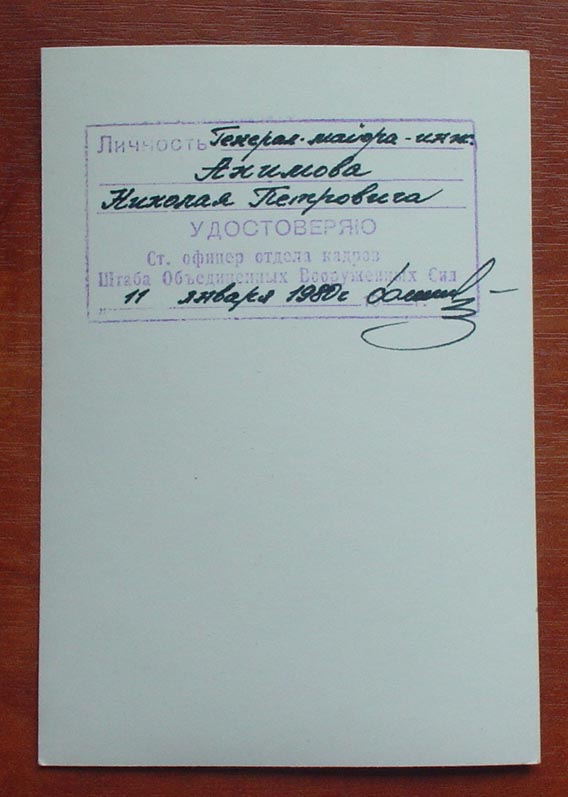 Личность Генерал-майора-инж.
Акимова
Николая Петровича
УДОСТОВЕРЯЮ
Ст. офицер отдела кадров
Штаба Объединенных Вооруженных Сил
„11 января 1980г.